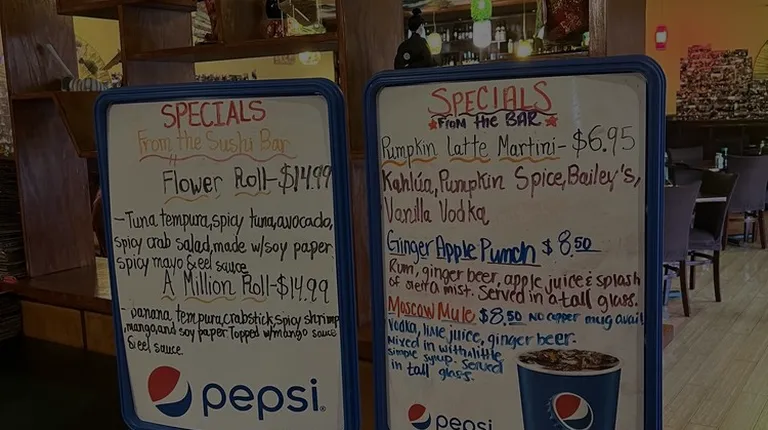 SPECIALS
From the Sushi Bar
Flower Roll-$14.99
-Tuna tempura, spicy tuna, avocado,
spicy crab salad, made w/soy paper
spicy mayo & eel sauce
A Million Roll-$14.99
-banana tempura, crabstick, spicy shrimp
,mango, and soy paper Topped w/mango sauce
& eel sauce.
pepsi
SPECIALS
FROM the BAR
Pumpkin Latte Martini-$6.95
Kahlúa, Pumpkin Spice, Bailey's,
Vanilla Vodka
Ginger Apple Punch $8.50
Rum, ginger beer, apple juice & splash
of sierra mist. Served in a tall glass.
Moscow Mule $8.50 No copper mug avail
Vodka, lime juice, ginger beer.
Mixed in with a little
simple syrup. Served
in tall glass.
pepsi